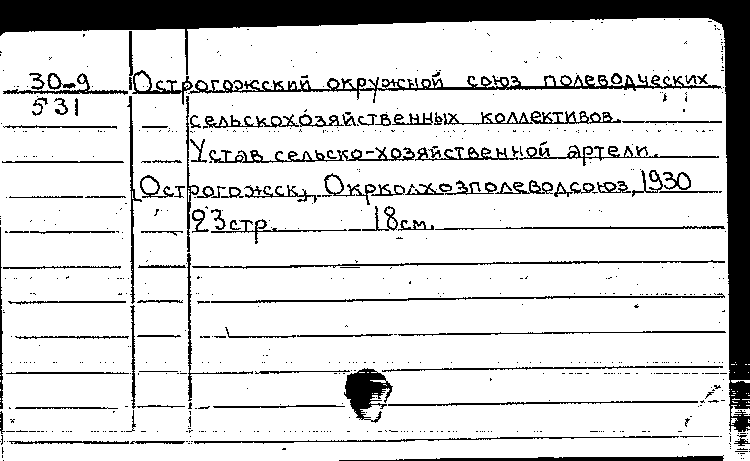 30-9 Острогожский окружной союз полеводческих
531 сельскохозяйственных коллективов.
Устав сельско-хозяйственной артели.
[Острогожск], Окрколхозполеводсоюз, 1930
23стр. 18см.